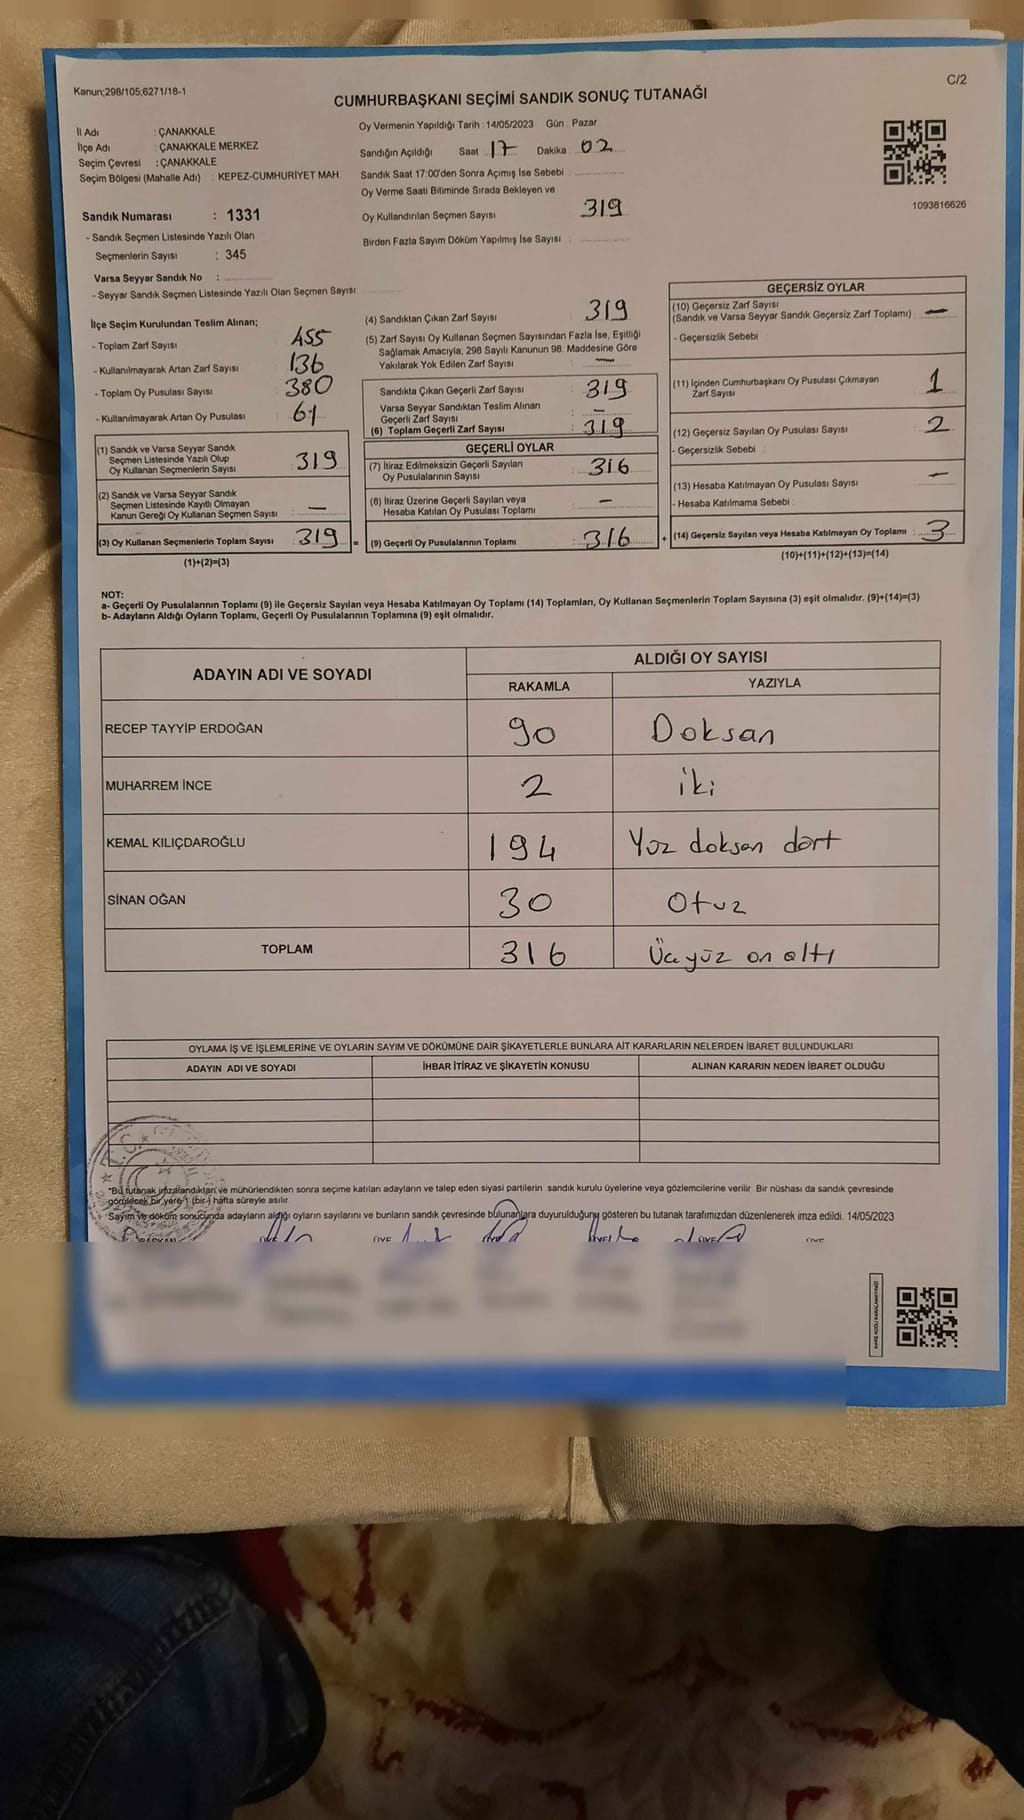 Kanun;298/105;6271/18-1
C/2
CUMHURBAŞKANI SEÇİMİ SANDIK SONUÇ TUTANAĞI
İl Adı : ÇANAKKALE
İlçe Adı : ÇANAKKALE MERKEZ
Seçim Çevresi : ÇANAKKALE
Seçim Bölgesi (Mahalle Adı) : KEPEZ-CUMHURİYET MAH.
Sandık Numarası : 1331
- Sandık Seçmen Listesinde Yazılı Olan
Seçmenlerin Sayısı : 345
Varsa Seyyar Sandık No :
- Seyyar Sandık Seçmen Listesinde Yazılı Olan Seçmen Sayısı:
Oy Vermenin Yapıldığı Tarih : 14/05/2023 Gün : Pazar
Sandığın Açıldığı Saat 17 Dakika 02
Sandık Saat 17:00'den Sonra Açımış İse Sebebi :
Oy Verme Saati Bitiminde Sırada Bekleyen ve
Oy Kullandırılan Seçmen Sayısı 319
Birden Fazla Sayım Döküm Yapılmış İse Sayısı :
1093816626
İlçe Seçim Kurulundan Teslim Alınan;
- Toplam Zarf Sayısı 455
- Kullanılmayarak Artan Zarf Sayısı 136
- Toplam Oy Pusulası Sayısı 380
- Kullanılmayarak Artan Oy Pusulası 61
(1) Sandık ve Varsa Seyyar Sandık
Seçmen Listesinde Yazılı Olup
Oy Kullanan Seçmenlerin Sayısı : 319
(2) Sandık ve Varsa Seyyar Sandık
Seçmen Listesinde Kayıtlı Olmayan
Kanun Gereği Oy Kullanan Seçmen Sayısı : —
(3) Oy Kullanan Seçmenlerin Toplam Sayısı : 319 =
(1)+(2)=(3)
(4) Sandıktan Çıkan Zarf Sayısı 319
(5) Zarf Sayısı Oy Kullanan Seçmen Sayısından Fazla İse, Eşitliği
Sağlamak Amacıyla, 298 Sayılı Kanunun 98. Maddesine Göre
Yakılarak Yok Edilen Zarf Sayısı : —
Sandıkta Çıkan Geçerli Zarf Sayısı : 319
Varsa Seyyar Sandıktan Teslim Alınan
Geçerli Zarf Sayısı : —
(6) Toplam Geçerli Zarf Sayısı : 319
GEÇERLİ OYLAR
(7) İtiraz Edilmeksizin Geçerli Sayılan
Oy Pusulalarının Sayısı : 316
(8) İtiraz Üzerine Geçerli Sayılan veya
Hesaba Katılan Oy Pusulası Toplamı : —
(9) Geçerli Oy Pusulalarının Toplamı : 316 +
GEÇERSİZ OYLAR
(10) Geçersiz Zarf Sayısı
(Sandık ve Varsa Seyyar Sandık Geçersiz Zarf Toplamı) : —
- Geçersizlik Sebebi :
(11) İçinden Cumhurbaşkanı Oy Pusulası Çıkmayan
Zarf Sayısı 1
(12) Geçersiz Sayılan Oy Pusulası Sayısı : 2
- Geçersizlik Sebebi :
(13) Hesaba Katılmayan Oy Pusulası Sayısı : —
- Hesaba Katılmama Sebebi :
(14) Geçersiz Sayılan veya Hesaba Katılmayan Oy Toplamı : 3
(10)+(11)+(12)+(13)=(14)
NOT:
a- Geçerli Oy Pusulalarının Toplamı (9) ile Geçersiz Sayılan veya Hesaba Katılmayan Oy Toplamı (14) Toplamları, Oy Kullanan Seçmenlerin Toplam Sayısına (3) eşit olmalıdır. (9)+(14)=(3)
b- Adayların Aldığı Oyların Toplamı, Geçerli Oy Pusulalarının Toplamına (9) eşit olmalıdır.
ADAYIN ADI VE SOYADI
ALDIĞI OY SAYISI
RAKAMLA YAZIYLA
RECEP TAYYİP ERDOĞAN 90 Doksan
MUHARREM İNCE 2 iki
KEMAL KILIÇDAROĞLU 194 Yüz doksan dört
SİNAN OĞAN 30 Otuz
TOPLAM 316 Üçyüz on altı
OYLAMA İŞ VE İŞLEMLERİNE VE OYLARIN SAYIM VE DÖKÜMÜNE DAİR ŞİKAYETLERLE BUNLARA AİT KARARLARIN NELERDEN İBARET BULUNDUKLARI
ADAYIN ADI VE SOYADI İHBAR İTİRAZ VE ŞİKAYETİN KONUSU ALINAN KARARIN NEDEN İBARET OLDUĞU
T.C.
*Bu tutanak imzalandıktan ve mühürlendikten sonra seçime katılan adayların ve talep eden siyasi partilerin sandık kurulu üyelerine veya gözlemcilerine verilir. Bir nüshası da sandık çevresinde
görülecek bir yere 1 (bir) hafta süreyle asılır.
Sayım ve döküm sonucunda adayların aldığı oyların sayılarını ve bunların sandık çevresinde bulunanlara duyurulduğunu gösteren bu tutanak tarafımızdan düzenlenerek imza edildi. 14/05/2023
BAŞKAN ÜYE ÜYE ÜYE ÜYE
KARE KODU KARALAMAYINIZ!